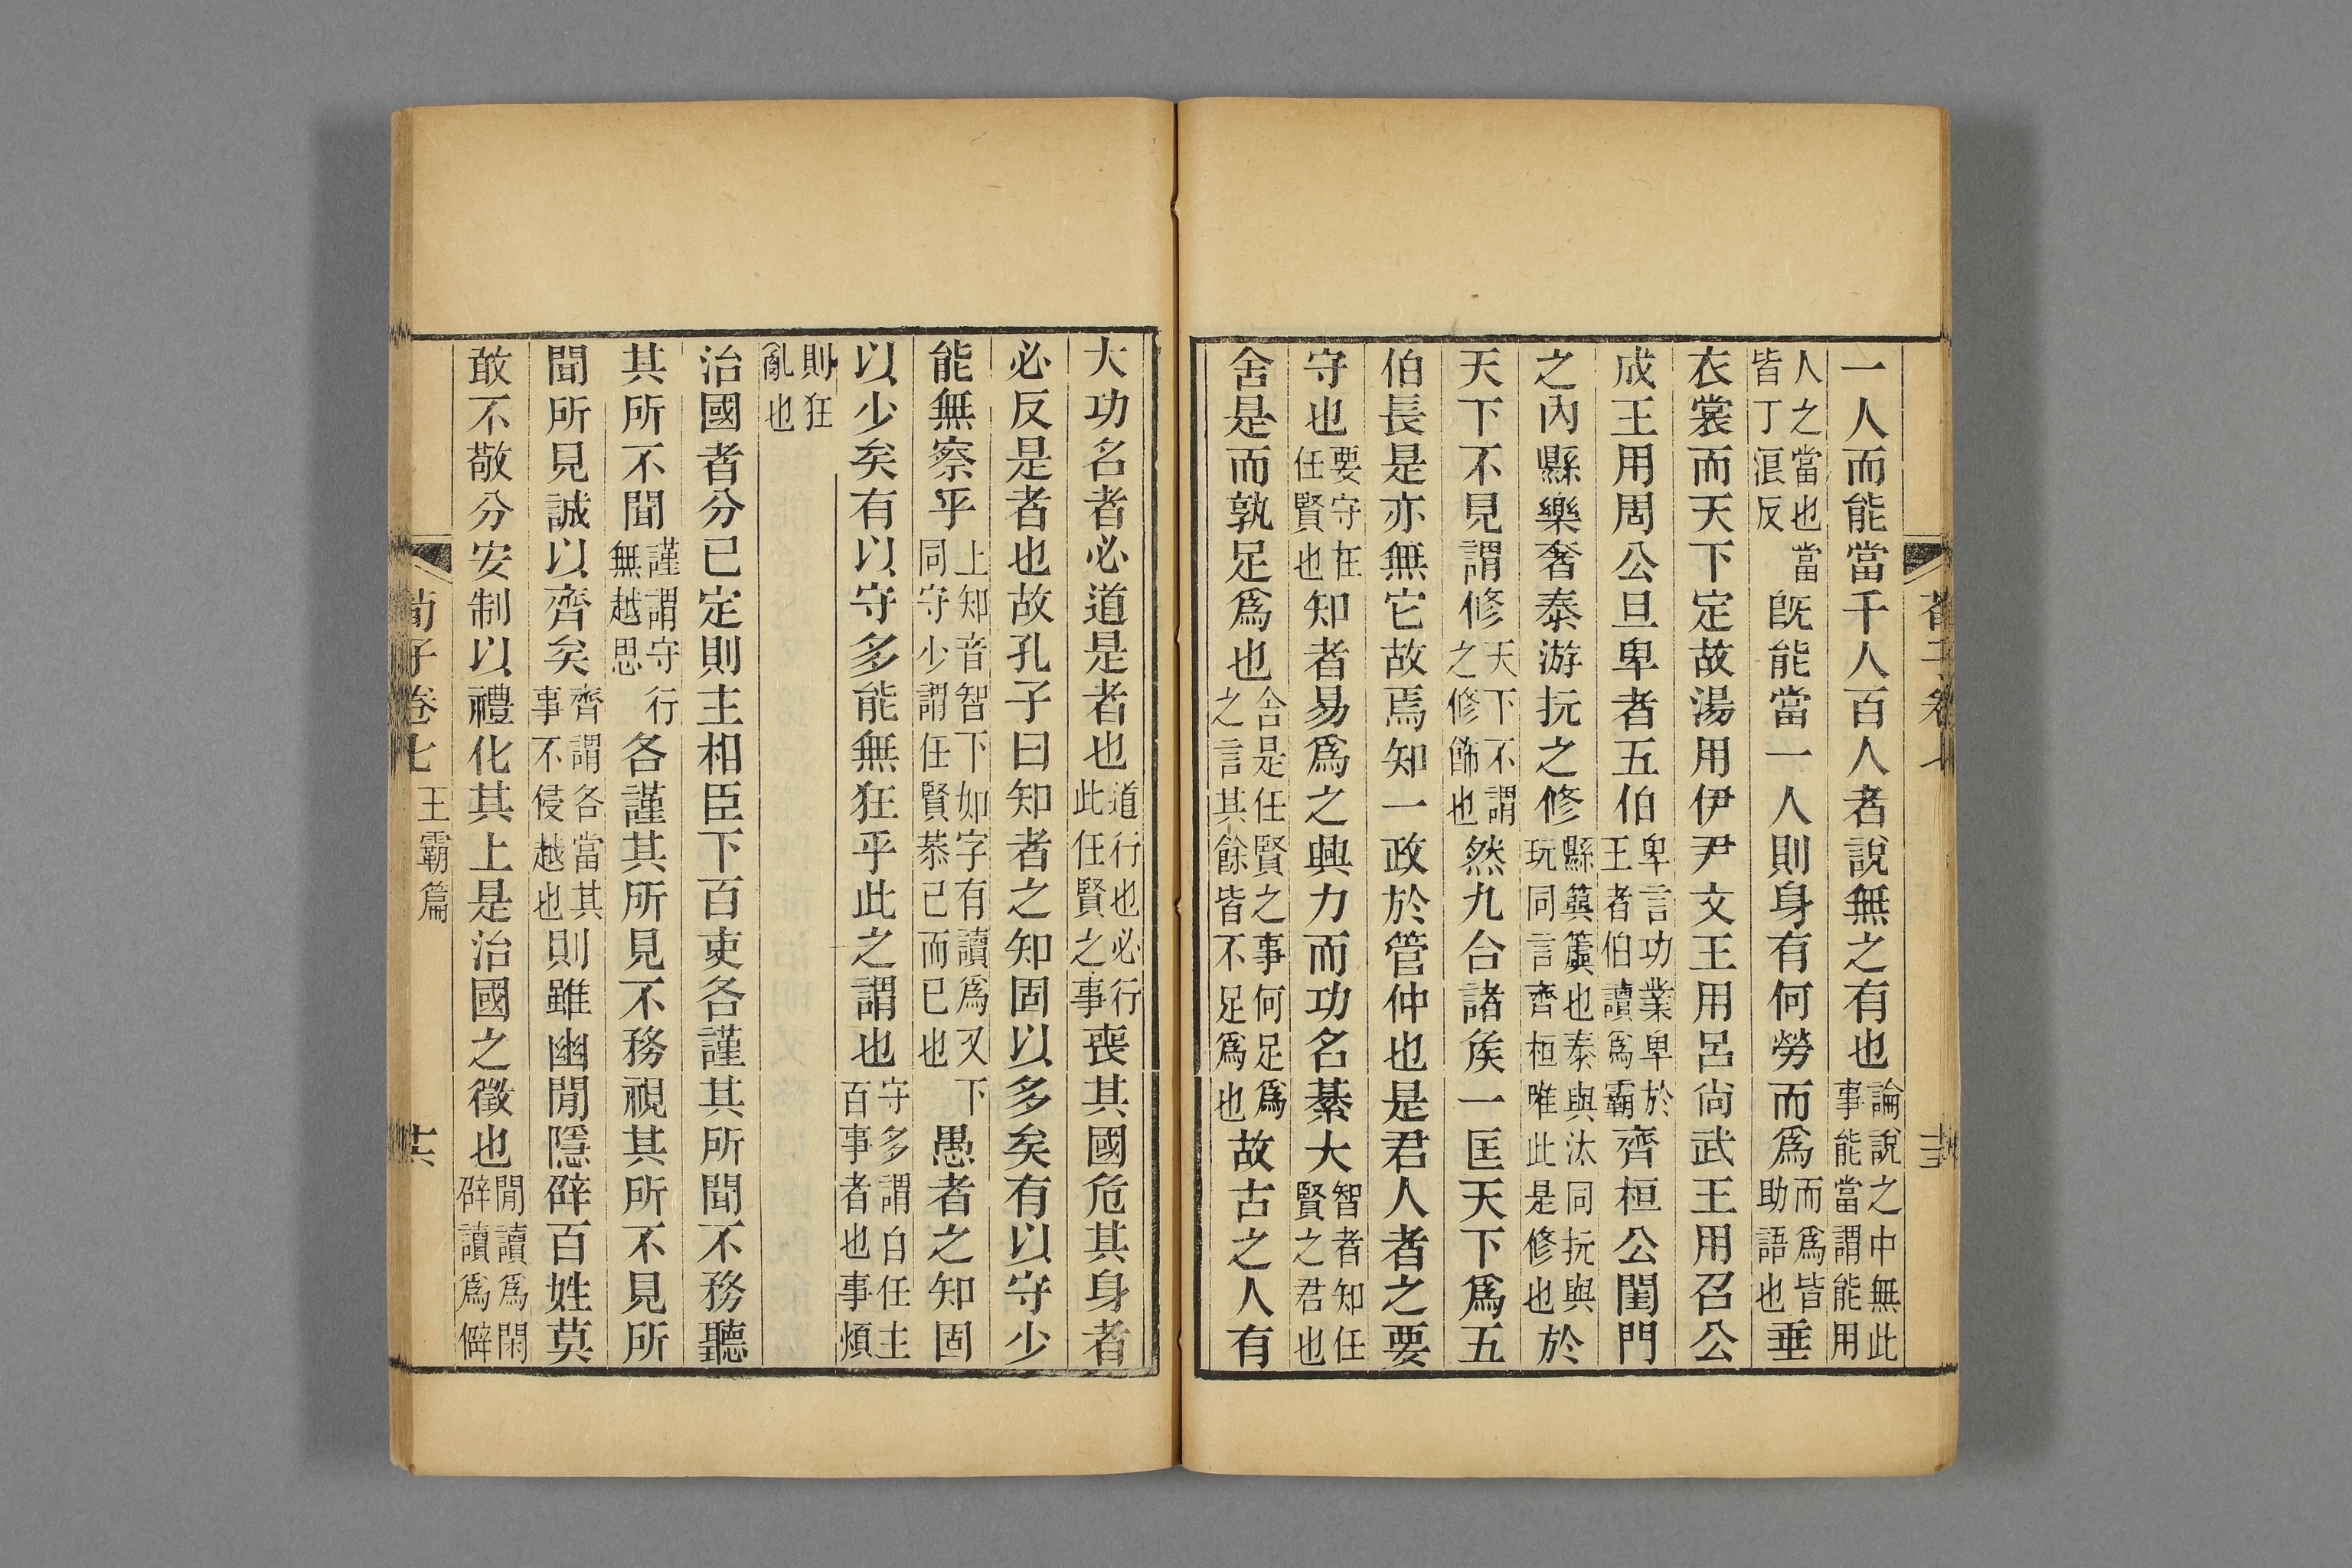 一人而能當千人百人者說無之有也論說之中無此事能當謂能用
人之當也當皆丁浪反既能當一人則身有何勞而爲而爲皆助語也垂
衣裳而天下定故湯用伊尹文王用呂尙武王用召公
成王用周公旦卑者五伯卑言功業卑於王者伯讀爲霸齊桓公閨門
之內縣樂奢泰游抏之修縣簨簴也泰與汰同抏與玩同言齊桓唯此是修也於
天下不見謂修天下不謂之修飾也然九合諸矦一匡天下爲五
伯長是亦無它故焉知一政於管仲也是君人者之要
守也要守在任賢也知者易爲之興力而功名綦大智者知任賢之君也
舍是而孰足爲也舍是任賢之事何足爲之言其餘皆不足爲也故古之人有
大功名者必道是者也道行也必行此任賢之事喪其國危其身者
必反是者也故孔子曰知者之知固以多矣有以守少
能無察乎上知音智下如字有讀爲又下同守少謂任賢恭己而已也愚者之知固
以少矣有以守多能無狂乎此之謂也守多謂自任主百事者也事煩
則狂亂也
治國者分已定則主相臣下百吏各謹其所聞不務聽
其所不聞謹謂守行無越思各謹其所見不務視其所不見所
聞所見誠以齊矣齊謂各當其事不侵越也則雖幽閒隱辟百姓莫
敢不敬分安制以禮化其上是治國之徵也閒讀爲閑辟讀爲僻
荀子卷七 王霸篇